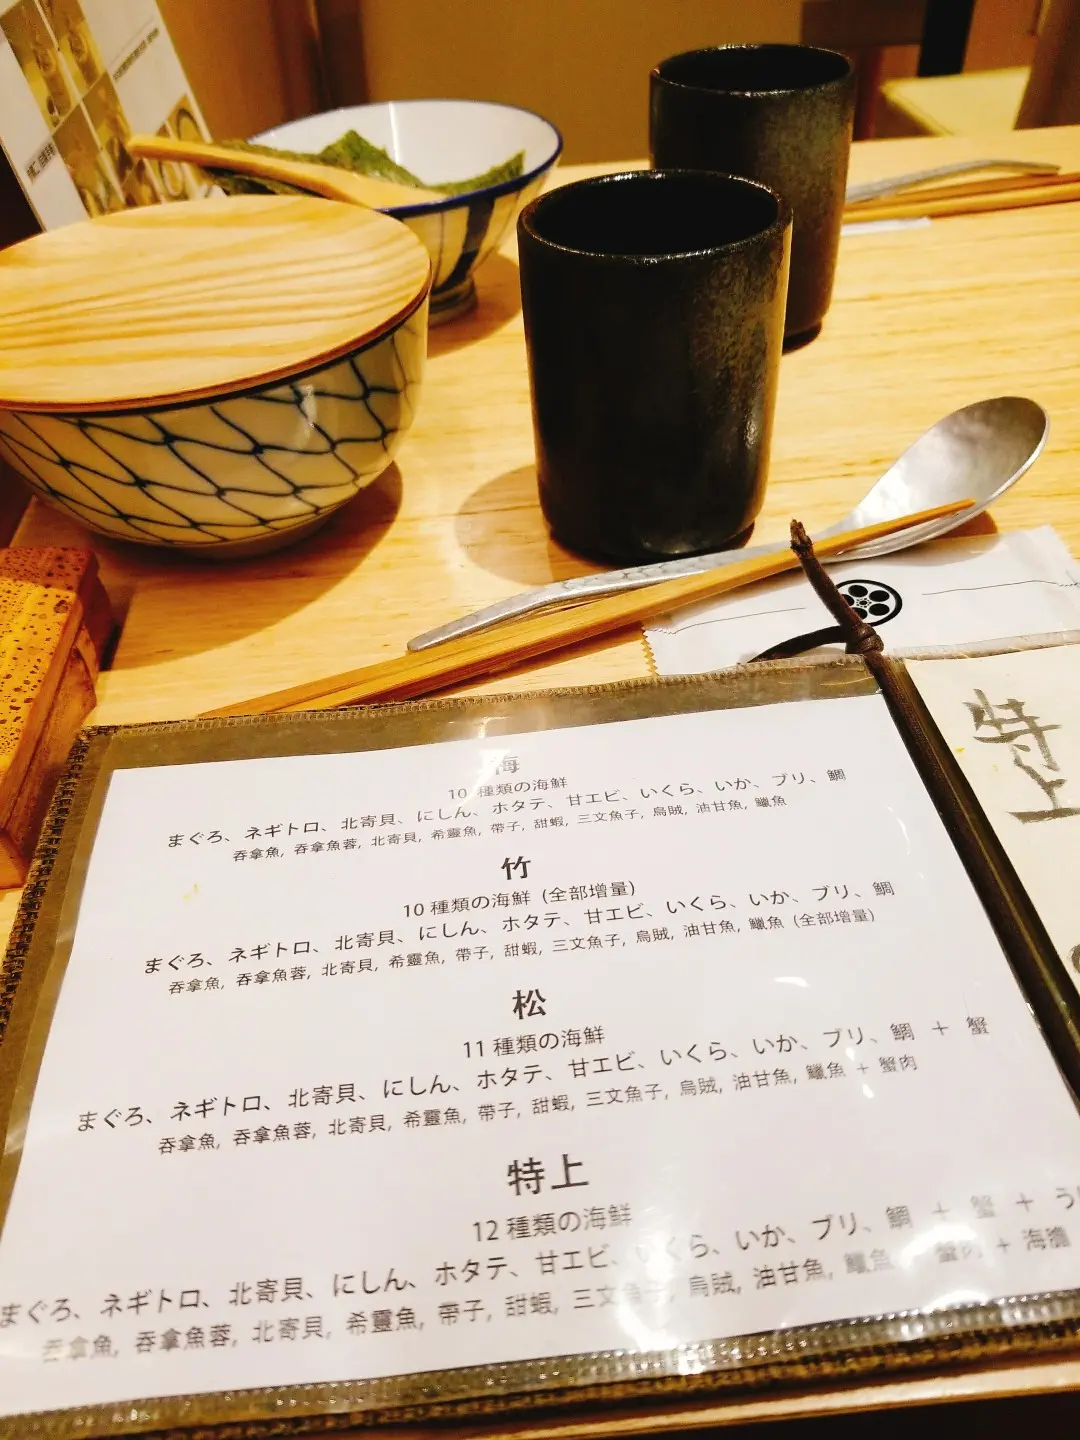 海
10 種類の海鮮
まぐろ、ネギトロ、北寄貝、にしん、ホタテ、甘エビ、いくら、いか、ブリ、鯛
吞拿魚, 吞拿魚蓉, 北寄貝, 希靈魚, 帶子, 甜蝦, 三文魚子, 烏賊, 油甘魚, 鱲魚
竹
10 種類の海鮮 (全部増量)
まぐろ、ネギトロ、北寄貝、にしん、ホタテ、甘エビ、いくら、いか、ブリ、鯛
吞拿魚, 吞拿魚蓉, 北寄貝, 希靈魚, 帶子, 甜蝦, 三文魚子, 烏賊, 油甘魚, 鱲魚 (全部增量)
松
11 種類の海鮮
まぐろ、ネギトロ、北寄貝、にしん、ホタテ、甘エビ、いくら、いか、ブリ、鯛 ＋ 蟹
吞拿魚, 吞拿魚蓉, 北寄貝, 希靈魚, 帶子, 甜蝦, 三文魚子, 烏賊, 油甘魚, 鱲魚 + 蟹肉
特上
12 種類の海鮮
まぐろ、ネギトロ、北寄貝、にしん、ホタテ、甘エビ、いくら、いか、ブリ、鯛 ＋ 蟹 ＋ う
吞拿魚, 吞拿魚蓉, 北寄貝, 希靈魚, 帶子, 甜蝦, 三文魚子, 烏賊, 油甘魚, 鱲魚 + 蟹肉 + 海膽
特上